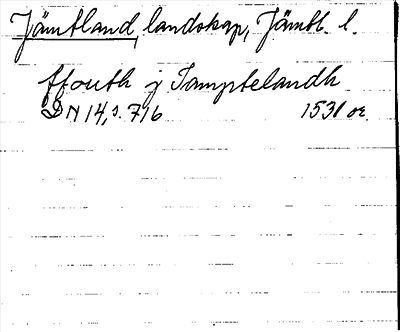 Jämtland, landskap, Jämtl. l.
ffouth j Jamptelandh
DN 14, s. 716 1531 or.